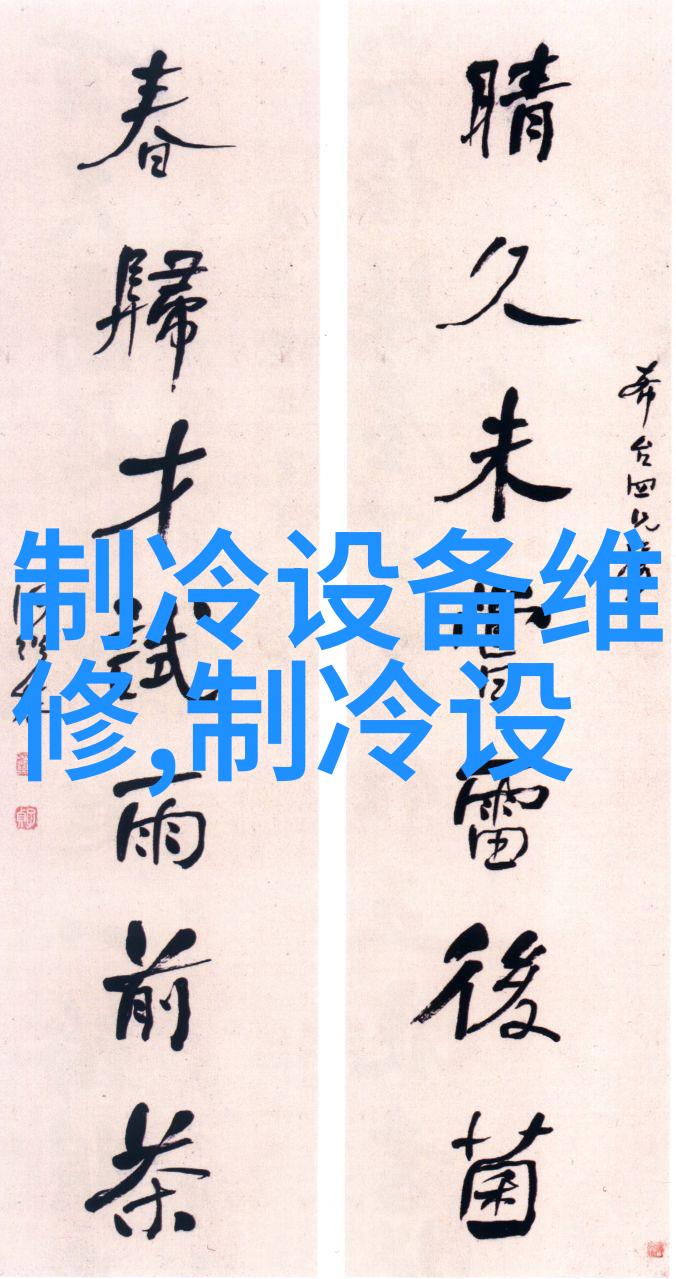 晴久未嘗雷後菌
台四兄
春歸才試雨前茶
制冷设备维
修,制冷设